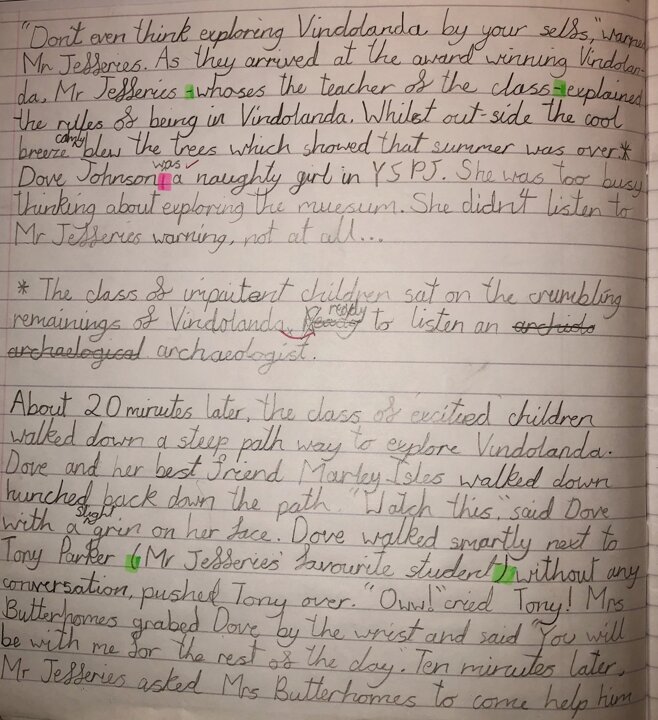 "Don't even think exploring Vindolanda by your selfs," warned
Mr Jefferies. As they arrived at the award winning Vindolan-
da, Mr Jefferies - whoses the teacher of the class - explained
the rules of being in Vindolanda. Whilst out-side the cool
breeze calmly blew the trees which showed that summer was over.*
Dove Johnson, was a naughty girl in YSPJ. She was too busy
thinking about exploring the muesum. She didn't listen to
Mr Jefferies warning, not at all...
* The class of impaitent children sat on the crumbling
remainings of Vindolanda, ready to listen an archido
archaelogical archaeologist.
About 20 minutes later, the class of excitied children
walked down a steep path way to explore Vindolanda.
Dove and her best friend Marley Isles walked down
hunched back down the path. "Watch this," said Dove
with a slight grin on her face. Dove walked smartly next to
Tony Parker (Mr Jefferies' favourite student) without any
conversation, pushed Tony over. "Oww!" cried Tony! Mrs
Butterhomes grabed Dove by the wrist and said "You will
be with me for the rest of the day. Ten minutes later,
Mr Jefferies asked Mrs Butterhomes to come help him